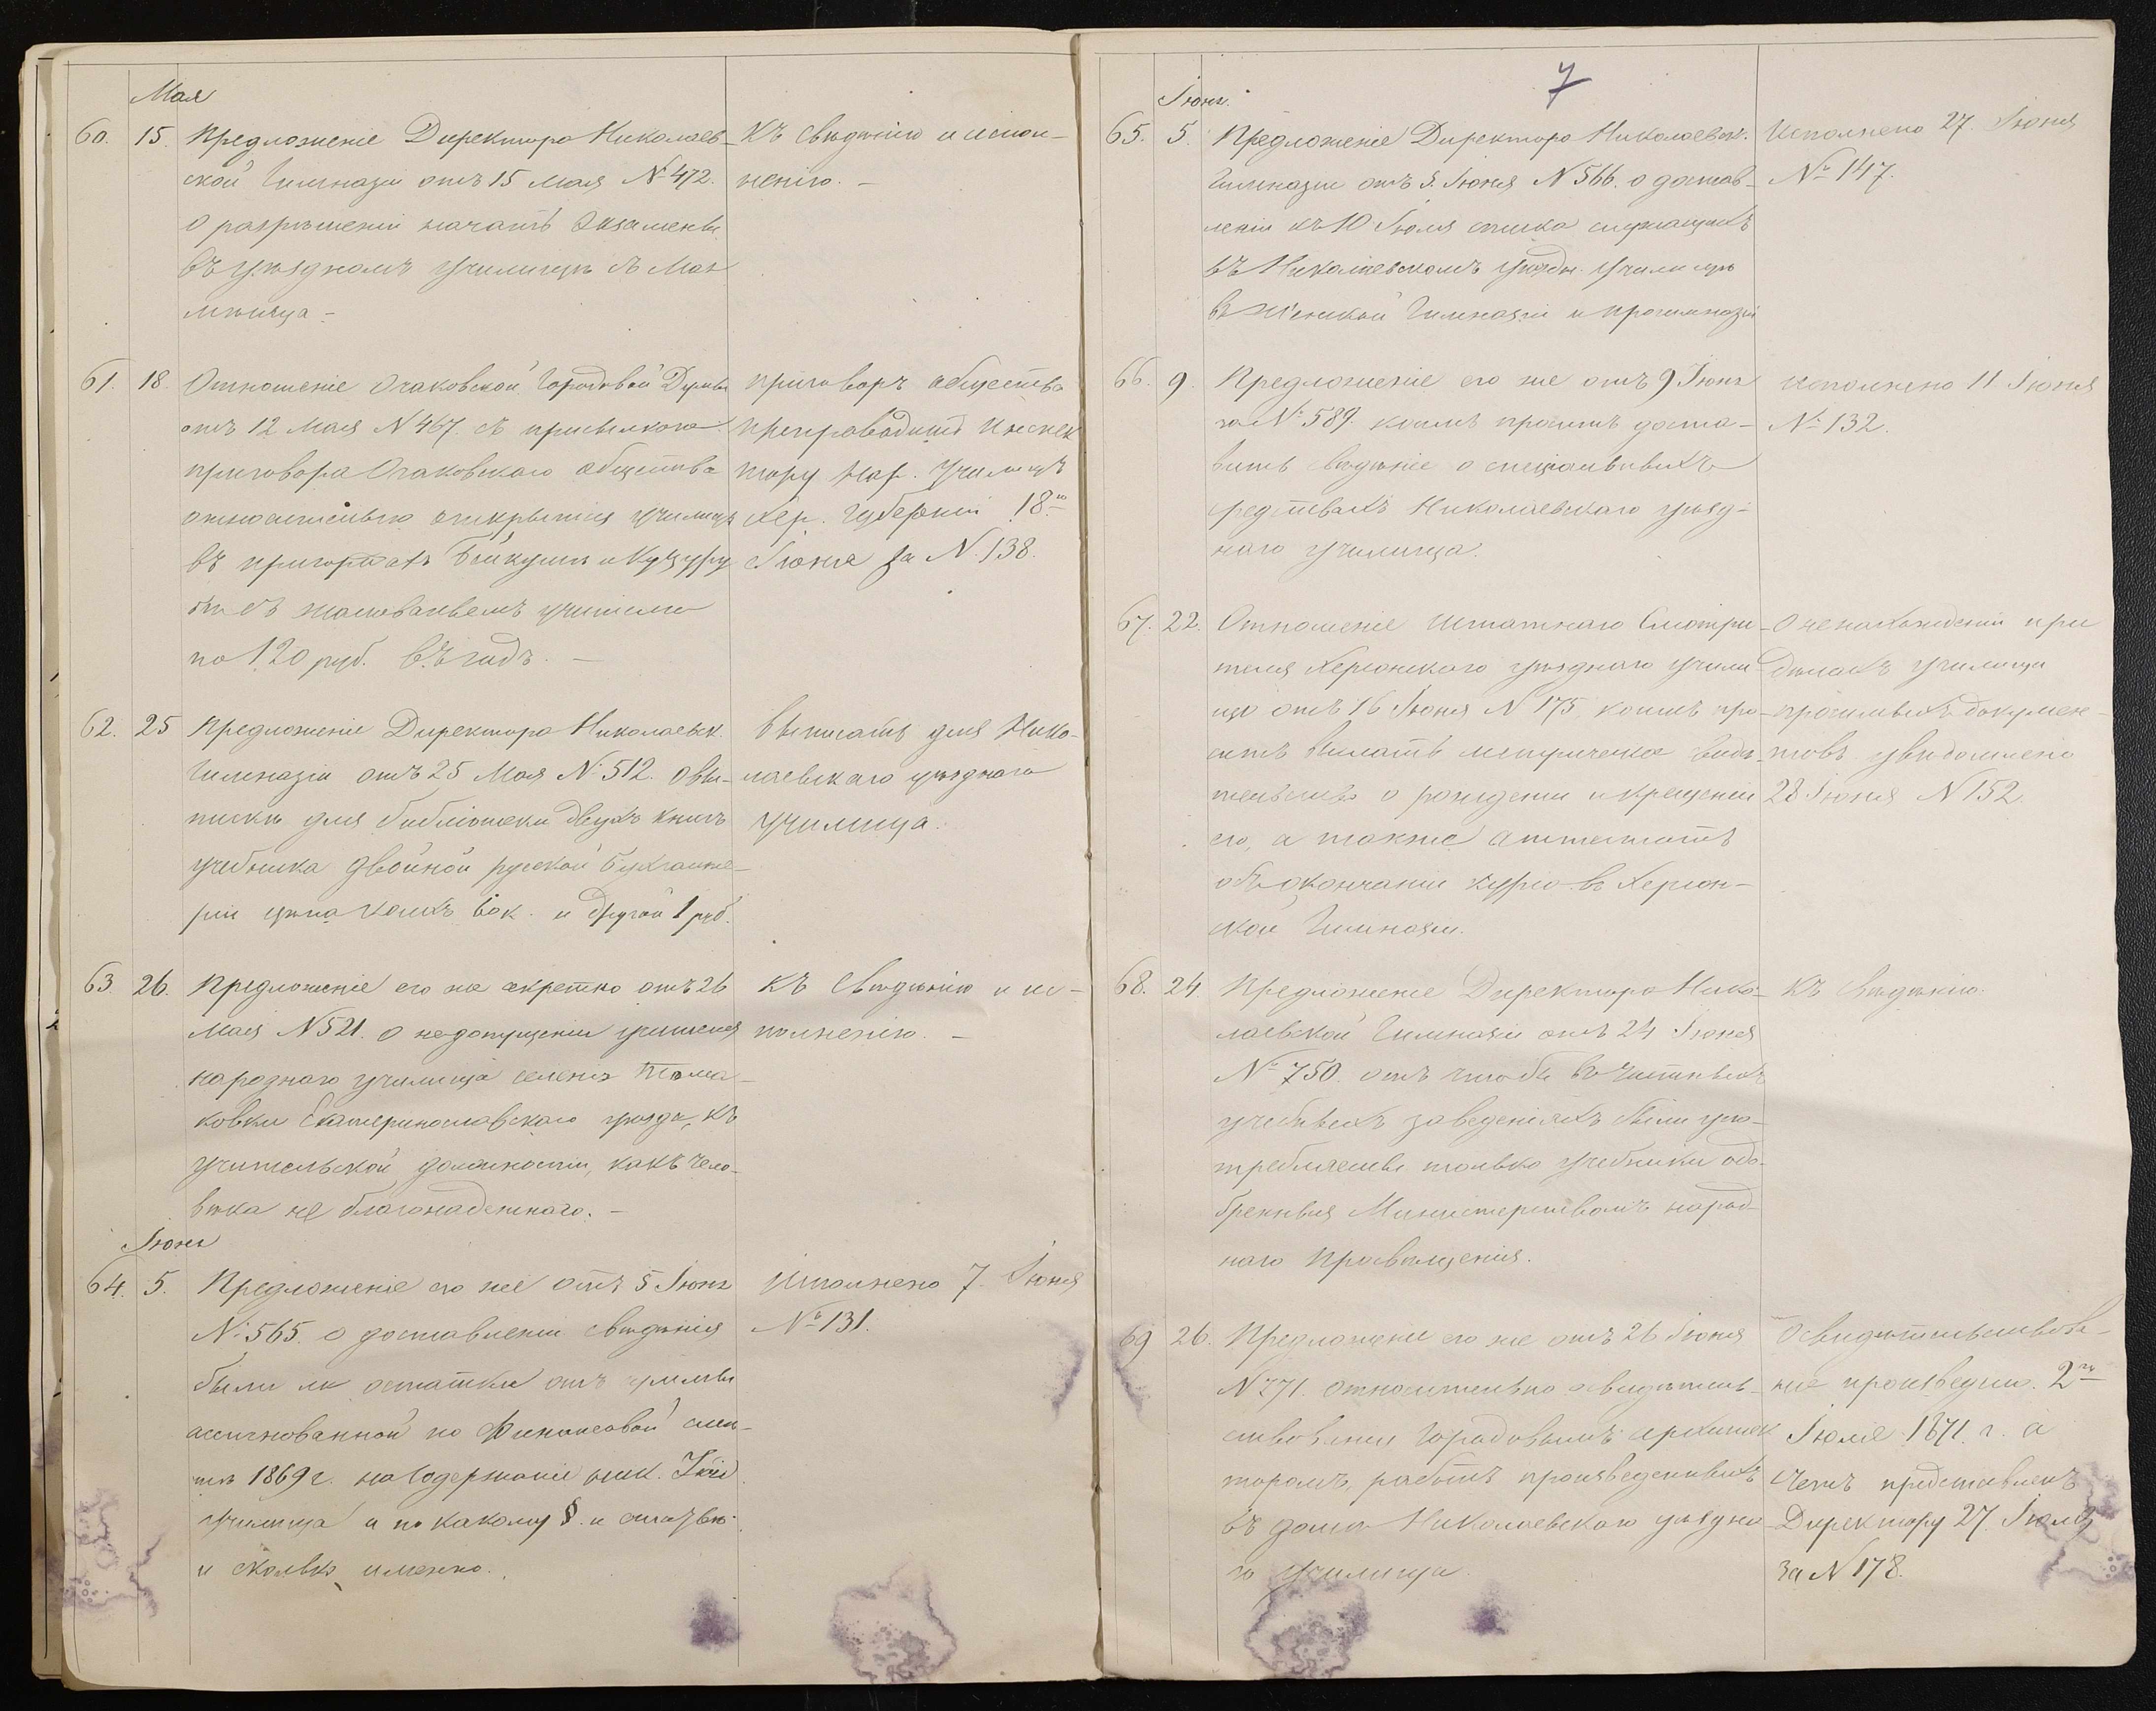 Мая
60. 15. Предложеніе Директора Николаев-
ской Гимназіи отъ 15 Мая № 472.
о разрѣшеніи начать экзамены
въ уѣздномъ училищѣ съ Мая
мѣсяца –
Къ свѣдѣнію и испол-
ненію. –
61. 18. Отношеніе Очаковской Городовой Думы
отъ 12 Мая № 467. съ присылкою
приговора Очаковскаго общества
относительно открытія училищъ
въ Бейкушъ и
съ жалованьемъ учителю
по 120 руб. въ годъ. –
приговоръ общества
препроводить Инспек
тору нар. Училищъ
Хер. Губерніи 18го
Іюня за № 138.
62. 25 Предложеніе Директора Николаевск.
Гимназіи отъ 25 Мая № 512. о вы-
пискѣ для библіотеки двухъ книгъ
учебника двойной русской Бухгалте-
ріи цѣна коихъ к. и другой 1 руб.
Выписать для Нико-
лаевскаго уѣзднаго
училища.
63. 26. Предложеніе его же секретно отъ 26
Мая № 521. о недопущеніи учителя
народнаго училища селенія Тома-
ковки Екатеринославскаго уѣзда, къ
учительской должности, какъ чело-
вѣка не благонадежнаго. –
Къ свѣдѣнію и ис-
полненію. –
Іюнь
64. 5. Предложеніе его же отъ 5 Іюня
№ 565. о доставленіи свѣдѣнія
были ли остатки отъ суммы
ассигнованной по Финансовой смѣ-
тѣ 1869 г. на содержаніе
училища и по какому §. и статьѣ
и сколько именно.
Исполнено 7. Іюня
№ 131.
7
Іюнь.
65. 5. Предложеніе Директора Николаевск.
Гимназіи отъ 5. Іюня № 566. о достав-
леніи къ 10 Іюля списка служащихъ
въ Николаевскомъ уѣздн. училищѣ
въ Женской Гимназіи и прогимназіи
Исполнено 27. Іюня
№ 147.
66. 9. Предложеніе его же отъ 9 Іюня
за № 589. коимъ проситъ доста-
вить свѣдѣніе о спеціальныхъ
средствахъ Николаевскаго уѣзд-
наго училища.
Исполнено 11 Іюня
№ 132.
67. 22. Отношеніе Штатнаго Смотри-
теля Херсонскаго уѣзднаго учили
ща отъ 16 Іюня № 175. коимъ про-
ситъ выслать метрическое свидѣ-
тельство о рожденіи и крещеніи
его, а также аттестатъ
объ окончаніи курса въ Херсон-
ской Гимназіи.
О ненахожденіи при
дѣлахъ училища
просимыхъ докумен-
товъ увѣдомлено
28 Іюня № 152
68. 24 Предложеніе Директора Нико-
лаевской Гимназіи отъ 24 Іюня
№ 750. отъ чтобы въ частныхъ
учебныхъ заведеніяхъ были упо-
требляемы только учебники одо-
бренныя Министерствомъ народ-
наго Просвѣщенія.
Къ свѣдѣнію.
69 26. Предложеніе его же отъ 26 Іюня
№ 771. относительно освидѣтель-
ствованія Городовымъ архитек
торомъ, работъ произведенныхъ
въ домѣ Николаевскаго уѣздна
го училища
Освидѣтельствова-
ніе произведено. 2го
Іюля 1871. г. а
счетъ представленъ
Директору 27. Іюля
за № 178.